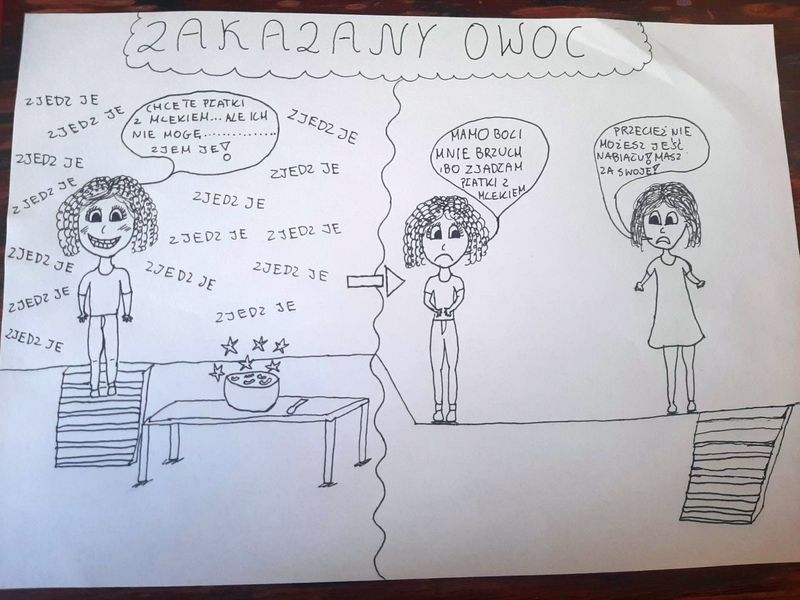 ZAKAZANY OWOC
ZJEDZ JE
ZJEDZ JE
CHCE TE PŁATKI
Z MLEKIEM...ALE ICH
NIE MOGĘ..............
ZJEM JE!
ZJEDZ JE
ZJEDZ JE
ZJEDZ JE
ZJEDZ JE
ZJEDZ JE
ZJEDZ JE
ZJEDZ JE
ZJEDZ JE
ZJEDZ JE
ZJEDZ JE
ZJEDZ JE
ZJEDZ JE
ZJEDZ JE
MAMO BOLI
MNIE BRZUCH
BO ZJADŁAM
PŁATKI Z
MLEKIEM
PRZECIEŻ NIE
MOŻESZ JEŚĆ
NABIAŁU! MASZ
ZA SWOJE!